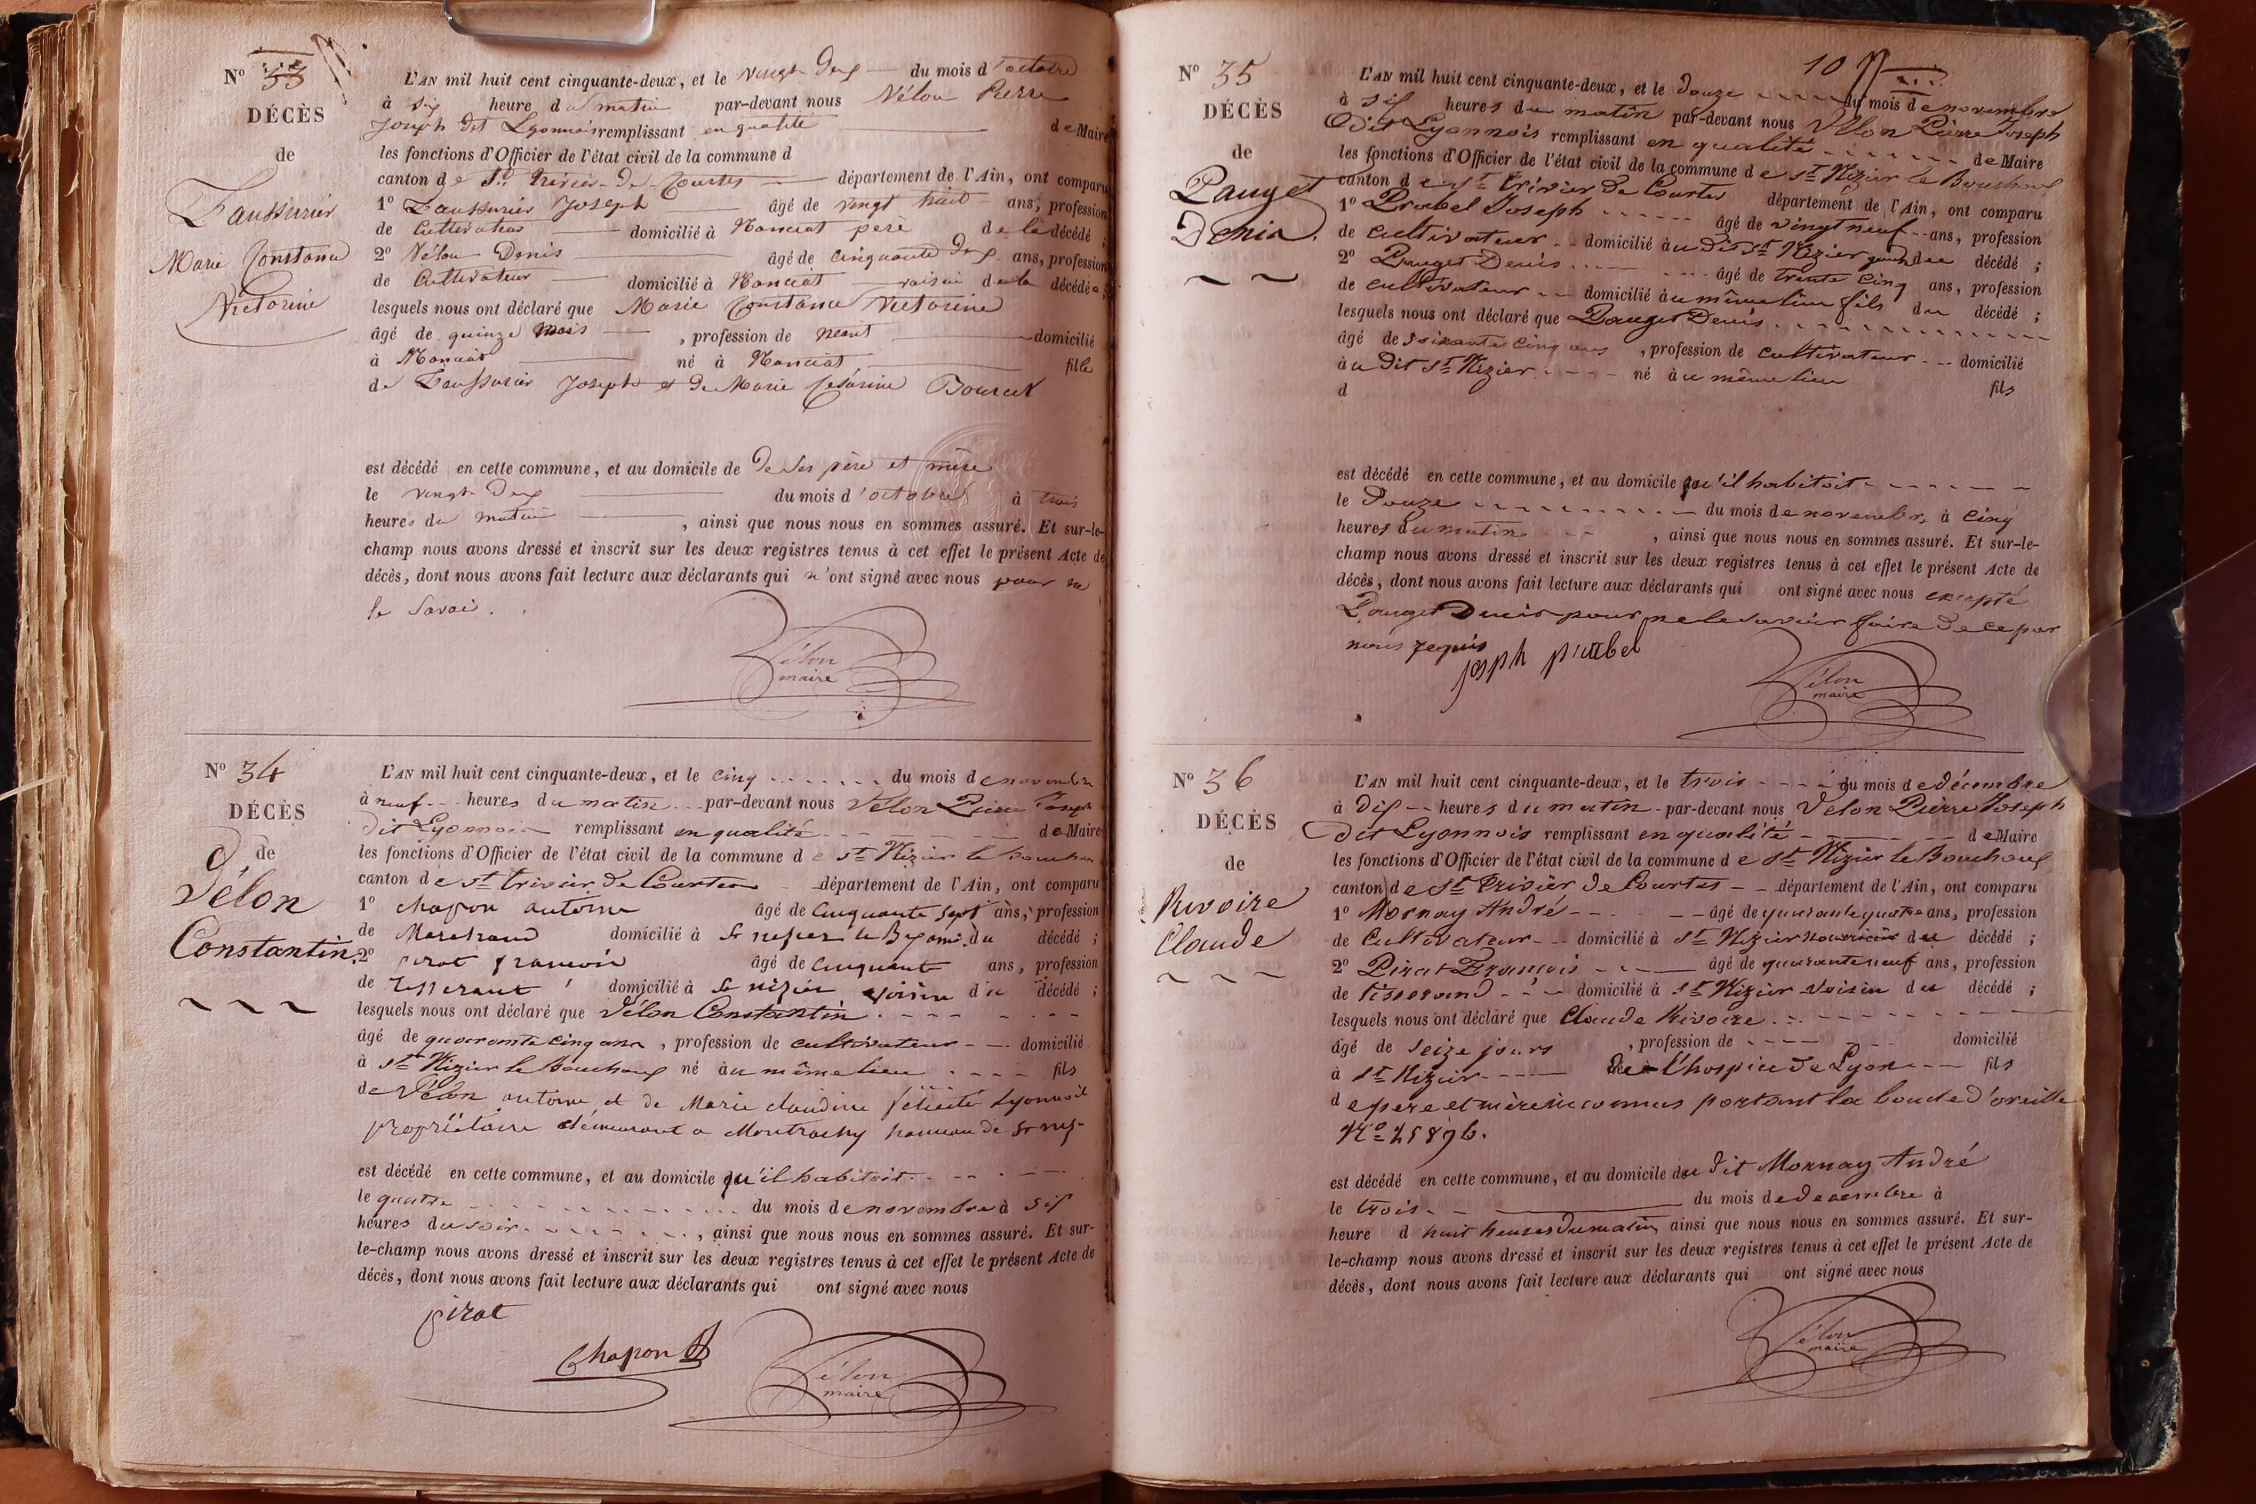 Nº 33
DÉCÈS
de
Marie Constance
Victorine
L'AN mil huit cent cinquante-deux, et le vingt deux du mois d'octobre
à six heure du matin par-devant nous Vélon Pierre
Joseph dit Lyonnais remplissant en qualité de Maire
les fonctions d'Officier de l'état civil de la commune d
canton de St Trivier-de-Courtes département de l'Ain, ont comparu
1º Joseph âgé de vingt huit ans, profession
de Cultivateur domicilié à père de la décédé ;
2º Vélon Denis âgé de cinquante deux ans, profession
de Cultivateur domicilié à voisin de la décédée ;
lesquels nous ont déclaré que Marie Constance Victorine
âgé de quinze mois , profession de néant domicilié
à né à fille
de Joseph et de Marie Césarine
est décédé en cette commune, et au domicile de de ses père et mère
le vingt deux du mois d'octobre à trois
heures du matin , ainsi que nous nous en sommes assuré. Et sur-le-
champ nous avons dressé et inscrit sur les deux registres tenus à cet effet le présent Acte de
décès, dont nous avons fait lecture aux déclarants qui n'ont signé avec nous pour ne
le savoir.
Vélon
maire
Nº 34
DÉCÈS
de
Vélon
Constantin.
L'AN mil huit cent cinquante-deux, et le cinq du mois de novembre
à neuf heures du matin par-devant nous Vélon Pierre Joseph
dit Lyonnais remplissant en qualité de Maire
les fonctions d'Officier de l'état civil de la commune de St Nizier le Bouchoux
canton de St Trivier de Courtes département de l'Ain, ont comparu
1º chapon antoine âgé de cinquante sept ans, profession
de Marchand domicilié à du décédé ;
2º pirat françois âgé de cinquante ans, profession
de domicilié à St nizier voisin du décédé ;
lesquels nous ont déclaré que Vélon Constantin
âgé de quarante cinq ans , profession de cultivateur domicilié
à St Nizier le Bouchoux né au même lieu fils
de Vélon antoine et de Marie claudine félicité Lyonnois
propriétaire démeurant a hameau de
est décédé en cette commune, et au domicile qu'il habitoit
le quatre du mois de novembre à six
heures du soir , ainsi que nous nous en sommes assuré. Et sur-
le-champ nous avons dressé et inscrit sur les deux registres tenus à cet effet le présent Acte de
décès, dont nous avons fait lecture aux déclarants qui ont signé avec nous
pirat
Chapon
Vélon
maire
10
Nº 35
DÉCÈS
de
Pauget
Denis.
L'AN mil huit cent cinquante-deux, et le douze du mois de novembre
à six heures du matin par-devant nous Vélon Pierre Joseph
dit Lyonnois remplissant en qualité de Maire
les fonctions d'Officier de l'état civil de la commune de St Nizier le Bouchoux
canton de St Trivier de Courtes département de l'Ain, ont comparu
1º Prabel Joseph âgé de vingt neuf ans, profession
de cultivateur domicilié au dit St Nizier gendre du décédé ;
2º Pauget Denis âgé de trente cinq ans, profession
de cultivateur domicilié au même lieu fils du décédé ;
lesquels nous ont déclaré que Pauget Denis
âgé de soixante cinq ans , profession de cultivateur domicilié
au dit St Nizier né au même lieu fils
d
est décédé en cette commune, et au domicile qu'il habitoit
le Douze du mois de novembre, à cinq
heures du matin , ainsi que nous nous en sommes assuré. Et sur-le-
champ nous avons dressé et inscrit sur les deux registres tenus à cet effet le présent Acte de
décès, dont nous avons fait lecture aux déclarants qui ont signé avec nous excepté
Pauget Denis pour ne le savoir faire de ce par
nous requis
joseph prabel
Vélon
maire
Nº 36
DÉCÈS
de
Rivoire
Claude
L'AN mil huit cent cinquante-deux, et le trois du mois de décembre
à dix heures du matin par-devant nous Velon Pierre Joseph
dit Lyonnois remplissant en qualité de Maire
les fonctions d'Officier de l'état civil de la commune de St Nizier le Bouchoux
canton de St Trivier de Courtes département de l'Ain, ont comparu
1º Mornay André âgé de quarante quatre ans, profession
de Cultivateur domicilié à St Nizier nourricier du décédé ;
2º Pirat François âgé de quarante neuf ans, profession
de tisserand domicilié à St Nizier voisin du décédé ;
lesquels nous ont déclaré que Claude Rivoire
âgé de seize jours , profession de domicilié
à St Nizier de l'hospice de Lyon fils
de père et mère inconnus portant la boucle d'oreille
Nº 25896.
est décédé en cette commune, et au domicile du dit Mornay André
le trois du mois de decembre à
heure d huit heures du matin ainsi que nous nous en sommes assuré. Et sur-
le-champ nous avons dressé et inscrit sur les deux registres tenus à cet effet le présent Acte de
décès, dont nous avons fait lecture aux déclarants qui ont signé avec nous
Vélon
maire